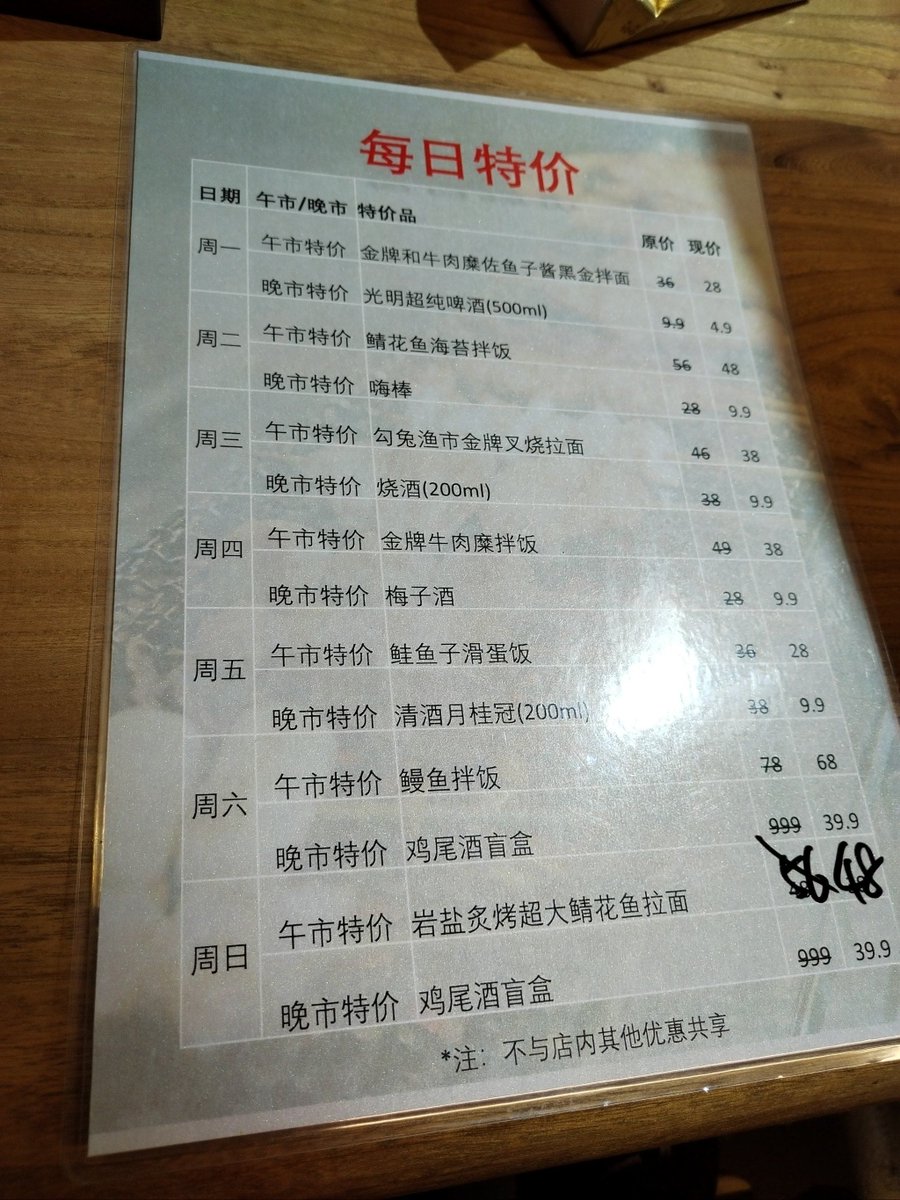 每日特价
日期 午市/晚市 特价品 原价 现价
周一 午市特价 金牌和牛肉糜佐鱼子酱黑金拌面 36 28
晚市特价 光明超纯啤酒(500ml) 9.9 4.9
周二 午市特价 鲭花鱼海苔拌饭 56 48
晚市特价 嗨棒 28 9.9
周三 午市特价 勾兔渔市金牌叉烧拉面 46 38
晚市特价 烧酒(200ml) 38 9.9
周四 午市特价 金牌牛肉糜拌饭 49 38
晚市特价 梅子酒 28 9.9
周五 午市特价 鲑鱼子滑蛋饭 36 28
晚市特价 清酒月桂冠(200ml) 38 9.9
周六 午市特价 鳗鱼拌饭 78 68
晚市特价 鸡尾酒盲盒 999 39.9
周日 午市特价 岩盐炙烤超大鲭花鱼拉面
晚市特价 鸡尾酒盲盒 999 39.9
*注：不与店内其他优惠共享